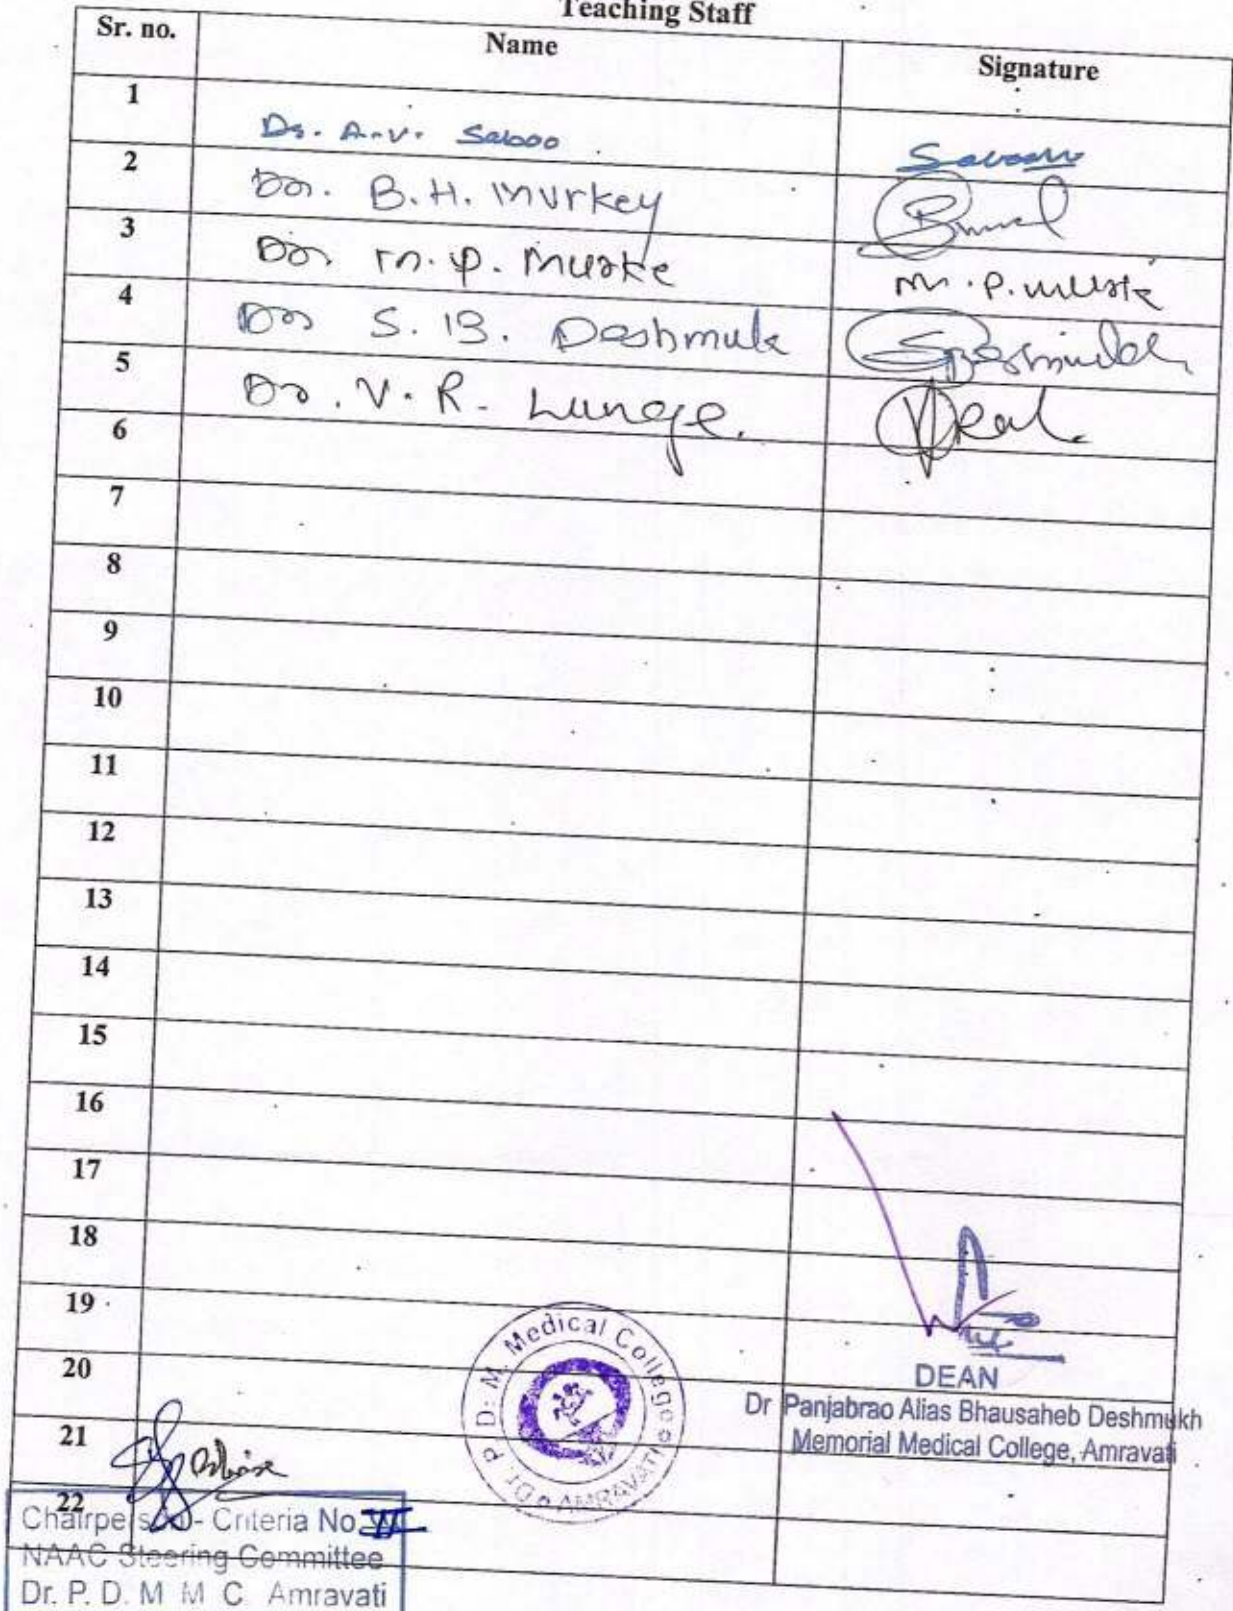 Teaching Staff
Sr. no. Name Signature
1 Dr. A.V. Saboo
2 Dr. B.H. Murkey
3 Dr. M.P. Muske M.P. Muske
4 Dr S.B. Deshmukh
5 Dr. V.R. Lunge.
6
7
8
9
10
11
12
13
14
15
16
17
18
19
20
21
22
Dr. P. D. M. Medical College
AMRAVATI
DEAN
Dr Panjabrao Alias Bhausaheb Deshmukh
Memorial Medical College, Amravati
Chairperson - Criteria No. VI
NAAC Steering Committee
Dr. P. D. M M C Amravati